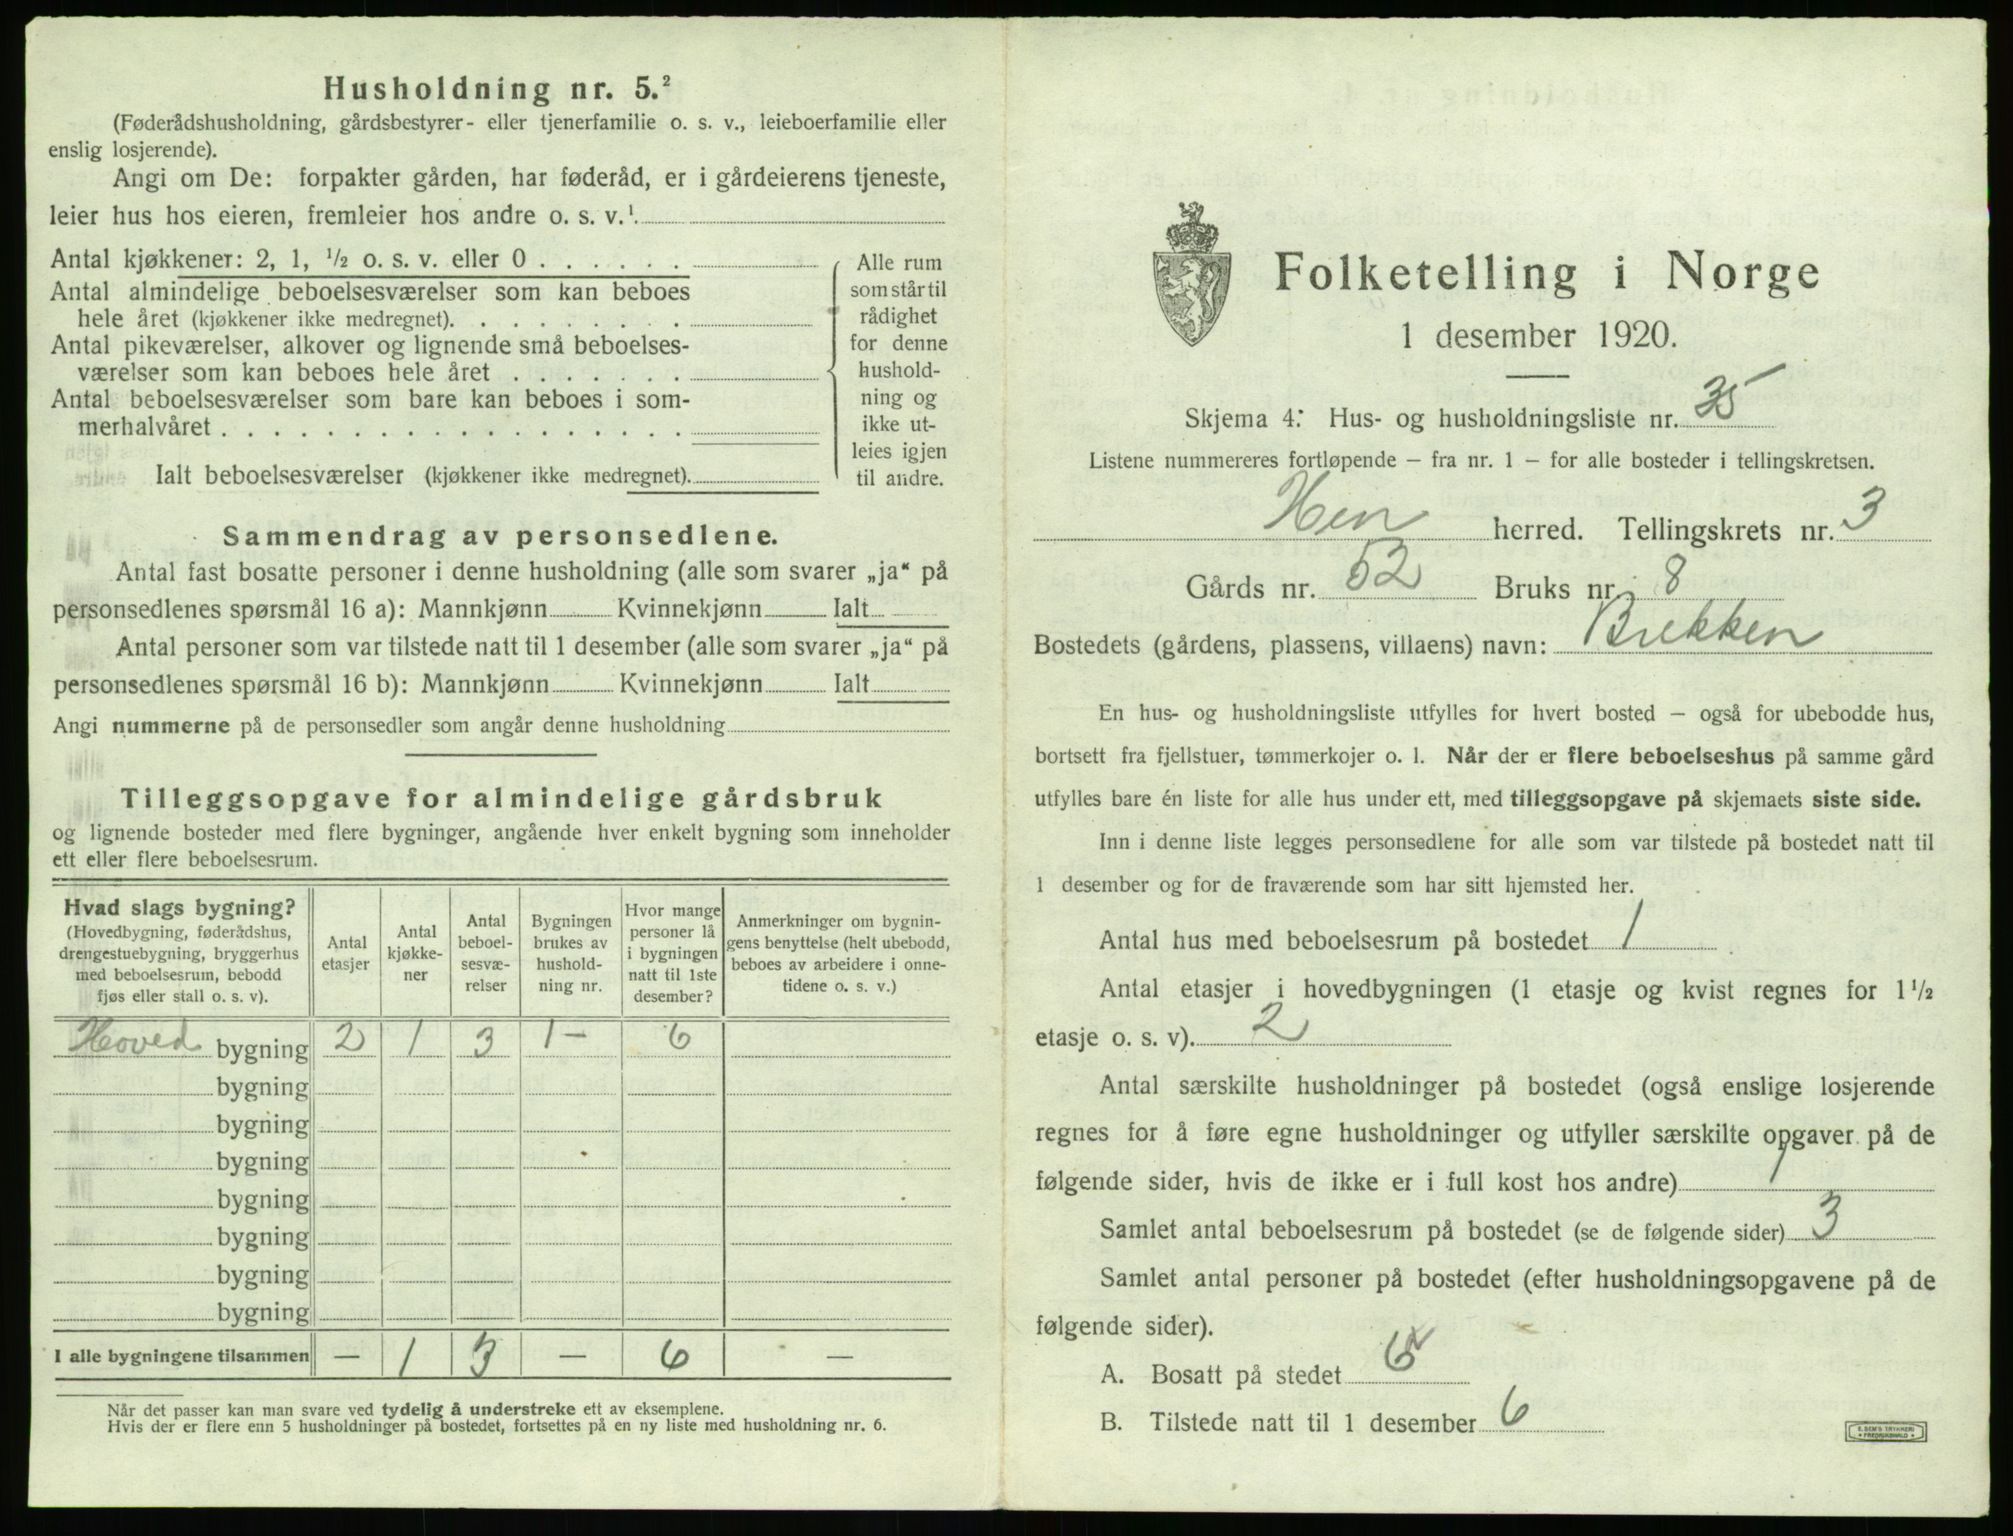 Husholdning nr. 5.²
(Føderådshusholdning, gårdsbestyrer- eller tjenerfamilie o. s. v., leieboerfamilie eller
enslig losjerende).
Angi om De: forpakter gården, har føderåd, er i gårdeierens tjeneste,
leier hus hos eieren, fremleier hos andre o. s. v.¹
Antal kjøkkener: 2, 1, ½ o. s. v. eller 0 . . . . . .
Antal almindelige beboelsesværelser som kan beboes
hele året (kjøkkener ikke medregnet). . . . . . . . .
Antal pikeværelser, alkover og lignende små beboelses-
værelser som kan beboes hele året . . . . . . .
Antal beboelsesværelser som bare kan beboes i som-
merhalvåret . . . . . . . . . . . . . . . . .
Ialt beboelsesværelser (kjøkkener ikke medregnet).
Alle rum
som står til
rådighet
for denne
hushold-
ning og
ikke ut-
leies igjen
til andre.
Sammendrag av personsedlene.
Antal fast bosatte personer i denne husholdning (alle som svarer „ja“ på
personsedlenes spørsmål 16 a): Mannkjønn Kvinnekjønn Ialt
Antal personer som var tilstede natt til 1 desember (alle som svarer „ja“ på
personsedlenes spørsmål 16 b): Mannkjønn Kvinnekjønn Ialt
Angi nummerne på de personsedler som angår denne husholdning
Tilleggsopgave for almindelige gårdsbruk
og lignende bosteder med flere bygninger, angående hver enkelt bygning som inneholder
ett eller flere beboelsesrum.
Hvad slags bygning?
(Hovedbygning, føderådshus,
drengestuebygning, bryggerhus
med beboelsesrum, bebodd
fjøs eller stall o. s. v).
Antal
etasjer
Antal
kjøkke-
ner
Antal
beboel-
sesvæ-
relser
Bygningen
brukes av
hushold-
ning nr.
Hvor mange
personer lå
i bygningen
natt til 1ste
desember?
Anmerkninger om bygnin-
gens benyttelse (helt ubebodd,
beboes av arbeidere i onne-
tidene o. s. v.)
Hoved bygning 2 1 3 1 — 6
bygning
bygning
bygning
bygning
bygning
bygning
bygning
I alle bygningene tilsammen — 1 3 — 6 —
Når det passer kan man svare ved tydelig å understreke ett av eksemplene.
Hvis der er flere enn 5 husholdninger på bostedet, fortsettes på en ny liste med husholdning nr. 6.
Folketelling i Norge
1 desember 1920.
Skjema 4: Hus- og husholdningsliste nr. 35
Listene nummereres fortløpende – fra nr. 1 – for alle bosteder i tellingskretsen.
Hen herred. Tellingskrets nr. 3
Gårds nr. 52 Bruks nr. 8
Bostedets (gårdens, plassens, villaens) navn: Brekken
En hus- og husholdningsliste utfylles for hvert bosted – også for ubebodde hus,
bortsett fra fjellstuer, tømmerkojer o. l. Når der er flere beboelseshus på samme gård
utfylles bare én liste for alle hus under ett, med tilleggsopgave på skjemaets siste side.
Inn i denne liste legges personsedlene for alle som var tilstede på bostedet natt til
1 desember og for de fraværende som har sitt hjemsted her.
Antal hus med beboelsesrum på bostedet 1
Antal etasjer i hovedbygningen (1 etasje og kvist regnes for 1½
etasje o. s. v). 2
Antal særskilte husholdninger på bostedet (også enslige losjerende
regnes for å føre egne husholdninger og utfyller særskilte opgaver på de
følgende sider, hvis de ikke er i full kost hos andre) 1
Samlet antal beboelsesrum på bostedet (se de følgende sider) 3
Samlet antal personer på bostedet (efter husholdningsopgavene på de
følgende sider).
A. Bosatt på stedet
B. Tilstede natt til 1 desember 6
E. SEM'S TRYKKERI
FREDRIKSHALD